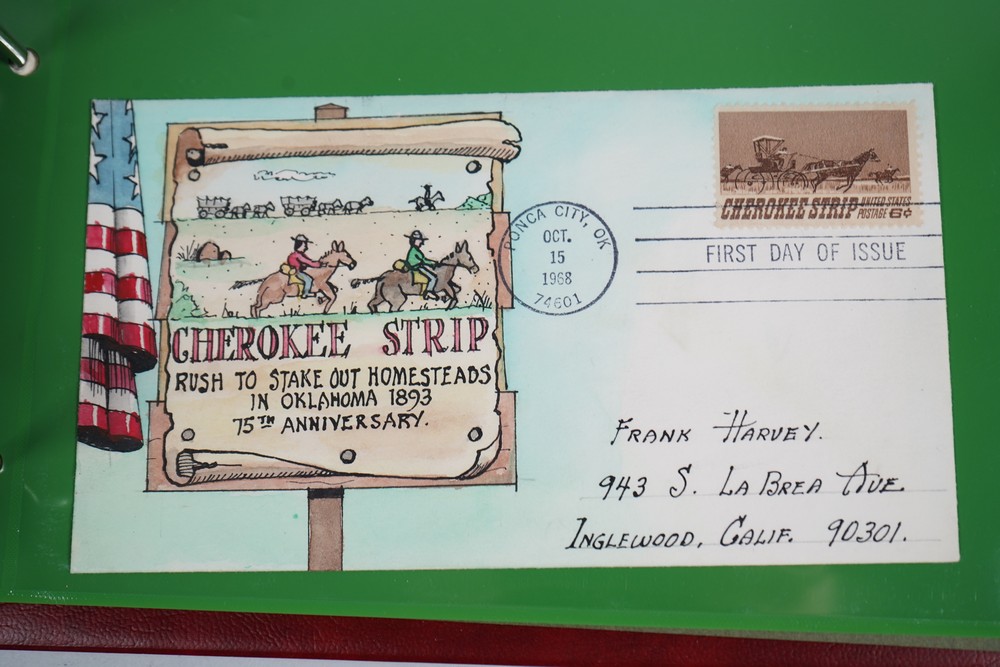 CHEROKEE STRIP
RUSH TO STAKE OUT HOMESTEADS
IN OKLAHOMA 1893
75TH ANNIVERSARY.
PONCA CITY, OK
OCT.
15
1968
74601
CHEROKEE STRIP UNITED STATES POSTAGE 6¢
FIRST DAY OF ISSUE
FRANK HARVEY.
943 S. LA BREA AVE.
INGLEWOOD, CALIF. 90301.